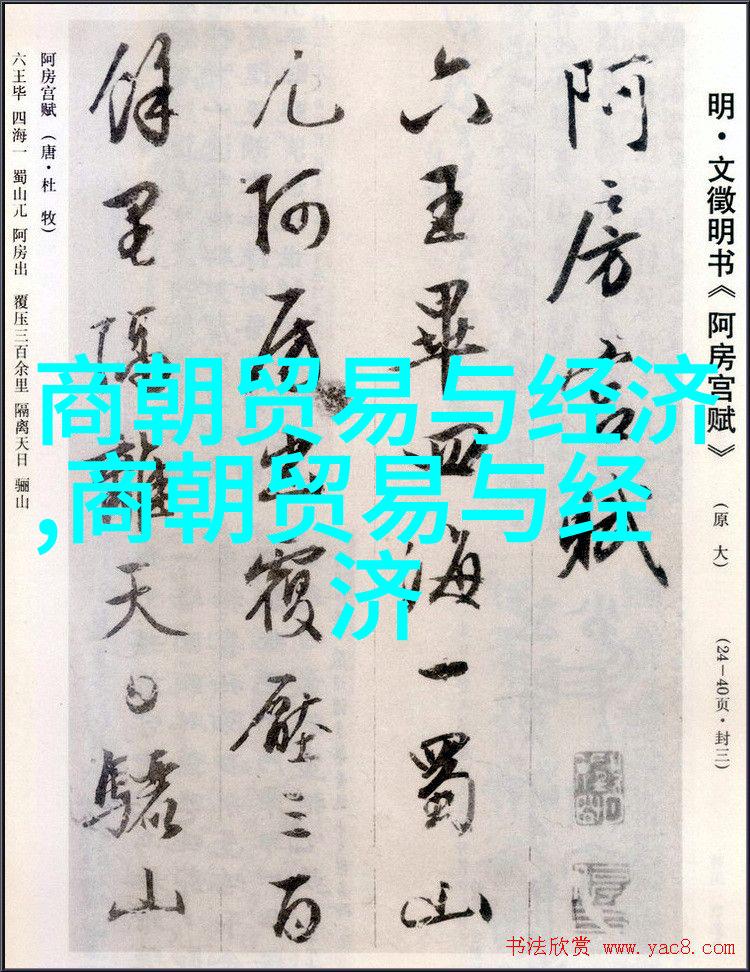 明·文徵明书《阿房宫赋》（原大）（24—40页·封三）
阿房宮賦
六王畢四海一蜀山
兀阿房出覆壓三百
餘里隔離天日驪山
阿房宫赋（唐·杜牧）
六王毕 四海一 蜀山兀 阿房出 覆压三百余里 隔离天日 骊山
商朝贸易与经济
,商朝贸易与经
济
书法欣赏 www.yac8.com